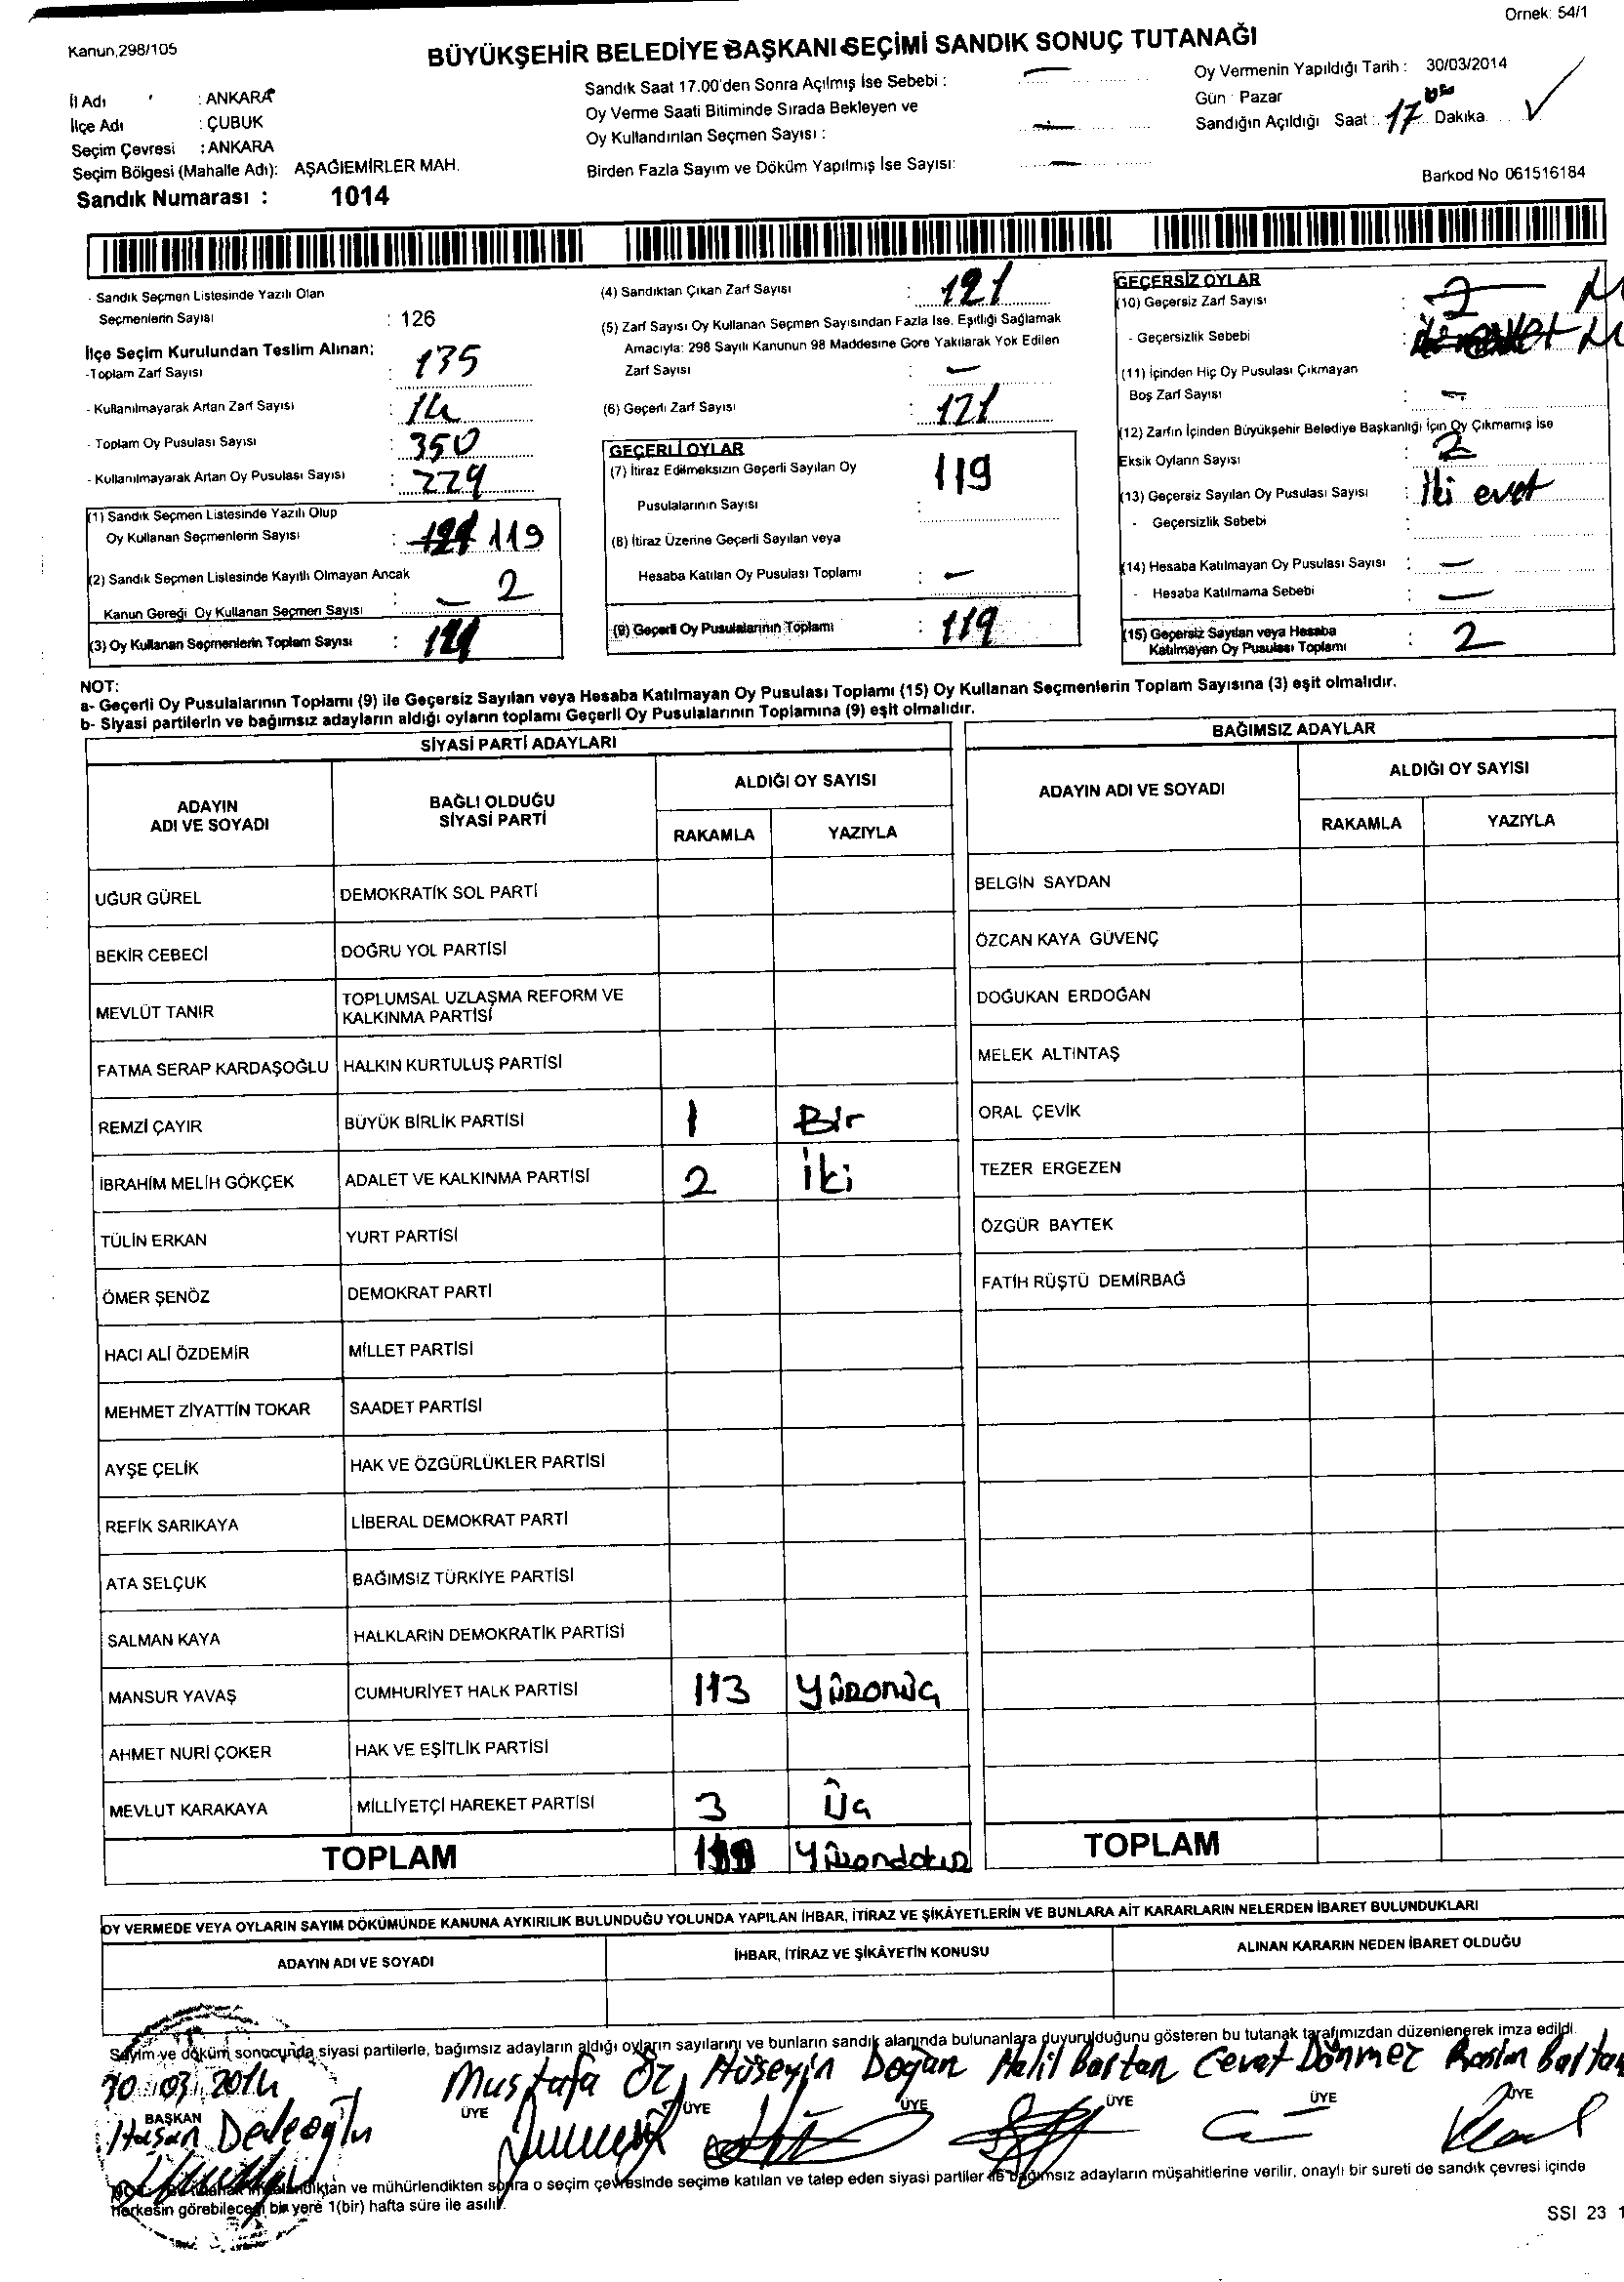 Ornek: 54/1
Kanun,298/105
BÜYÜKŞEHİR BELEDİYE BAŞKANI SEÇİMİ SANDIK SONUÇ TUTANAĞI
İl Adı : ANKARA
İlçe Adı : ÇUBUK
Seçim Çevresi : ANKARA
Seçim Bölgesi (Mahalle Adı): AŞAĞIEMİRLER MAH.
Sandık Numarası : 1014
Sandık Saat 17.00'den Sonra Açılmış İse Sebebi : —
Oy Verme Saati Bitiminde Sırada Bekleyen ve
Oy Kullandırılan Seçmen Sayısı : —
Birden Fazla Sayım ve Döküm Yapılmış İse Sayısı: —
Oy Vermenin Yapıldığı Tarih : 30/03/2014
Gün : Pazar
Sandığın Açıldığı Saat : 17 Dakika
Barkod No 061516184
- Sandık Seçmen Listesinde Yazılı Olan
Seçmenlerin Sayısı : 126
İlçe Seçim Kurulundan Teslim Alınan:
-Toplam Zarf Sayısı : 135
- Kullanılmayarak Artan Zarf Sayısı : 14
- Toplam Oy Pusulası Sayısı : 350
- Kullanılmayarak Artan Oy Pusulası Sayısı : 229
(1) Sandık Seçmen Listesinde Yazılı Olup
Oy Kullanan Seçmenlerin Sayısı : 119
(2) Sandık Seçmen Listesinde Kayıtlı Olmayan Ancak
Kanun Gereği Oy Kullanan Seçmen Sayısı : — 2
(3) Oy Kullanan Seçmenlerin Toplam Sayısı : 121
(4) Sandıktan Çıkan Zarf Sayısı : 121
(5) Zarf Sayısı Oy Kullanan Seçmen Sayısından Fazla İse, Eşitliği Sağlamak
Amacıyla: 298 Sayılı Kanunun 98 Maddesine Gore Yakılarak Yok Edilen
Zarf Sayısı : —
(6) Geçerli Zarf Sayısı : 121
GEÇERLİ OYLAR
(7) İtiraz Edilmeksizin Geçerli Sayılan Oy
Pusulalarının Sayısı : 119
(8) İtiraz Üzerine Geçerli Sayılan veya
Hesaba Katılan Oy Pusulası Toplamı : —
(9) Geçerli Oy Pusulalarının Toplamı : 119
GEÇERSİZ OYLAR
(10) Geçersiz Zarf Sayısı : 2
- Geçersizlik Sebebi :
(11) İçinden Hiç Oy Pusulası Çıkmayan
Boş Zarf Sayısı : —
(12) Zarfın İçinden Büyükşehir Belediye Başkanlığı İçin Oy Çıkmamış İse
Eksik Oyların Sayısı : 2
(13) Geçersiz Sayılan Oy Pusulası Sayısı : İki evet
- Geçersizlik Sebebi :
(14) Hesaba Katılmayan Oy Pusulası Sayısı : —
- Hesaba Katılmama Sebebi : —
(15) Geçersiz Sayılan veya Hesaba
Katılmayan Oy Pusulası Toplamı : 2
NOT:
a- Geçerli Oy Pusulalarının Toplamı (9) ile Geçersiz Sayılan veya Hesaba Katılmayan Oy Pusulası Toplamı (15) Oy Kullanan Seçmenlerin Toplam Sayısına (3) eşit olmalıdır.
b- Siyasi partilerin ve bağımsız adayların aldığı oyların toplamı Geçerli Oy Pusulalarının Toplamına (9) eşit olmalıdır.
SİYASİ PARTİ ADAYLARI
ADAYIN ADI VE SOYADI
BAĞLI OLDUĞU SİYASİ PARTİ
ALDIĞI OY SAYISI
RAKAMLA YAZIYLA
UĞUR GÜREL DEMOKRATİK SOL PARTİ
BEKİR CEBECİ DOĞRU YOL PARTİSİ
MEVLÜT TANIR TOPLUMSAL UZLAŞMA REFORM VE KALKINMA PARTİSİ
FATMA SERAP KARDAŞOĞLU HALKIN KURTULUŞ PARTİSİ
REMZİ ÇAYIR BÜYÜK BİRLİK PARTİSİ 1 Bir
İBRAHİM MELİH GÖKÇEK ADALET VE KALKINMA PARTİSİ 2 İki
TÜLİN ERKAN YURT PARTİSİ
ÖMER ŞENÖZ DEMOKRAT PARTİ
HACI ALİ ÖZDEMİR MİLLET PARTİSİ
MEHMET ZİYATTİN TOKAR SAADET PARTİSİ
AYŞE ÇELİK HAK VE ÖZGÜRLÜKLER PARTİSİ
REFİK SARIKAYA LİBERAL DEMOKRAT PARTİ
ATA SELÇUK BAĞIMSIZ TÜRKİYE PARTİSİ
SALMAN KAYA HALKLARIN DEMOKRATİK PARTİSİ
MANSUR YAVAŞ CUMHURİYET HALK PARTİSİ 113 Yüzonüç
AHMET NURİ ÇOKER HAK VE EŞİTLİK PARTİSİ
MEVLUT KARAKAYA MİLLİYETÇİ HAREKET PARTİSİ 3 Üç
TOPLAM 119 Yüzondokuz
BAĞIMSIZ ADAYLAR
ADAYIN ADI VE SOYADI
ALDIĞI OY SAYISI
RAKAMLA YAZIYLA
BELGİN SAYDAN
ÖZCAN KAYA GÜVENÇ
DOĞUKAN ERDOĞAN
MELEK ALTINTAŞ
ORAL ÇEVİK
TEZER ERGEZEN
ÖZGÜR BAYTEK
FATİH RÜŞTÜ DEMİRBAĞ
TOPLAM
OY VERMEDE VEYA OYLARIN SAYIM DÖKÜMÜNDE KANUNA AYKIRILIK BULUNDUĞU YOLUNDA YAPILAN İHBAR, İTİRAZ VE ŞİKÂYETLERİN VE BUNLARA AİT KARARLARIN NELERDEN İBARET BULUNDUKLARI
ADAYIN ADI VE SOYADI İHBAR, İTİRAZ VE ŞİKÂYETİN KONUSU ALINAN KARARIN NEDEN İBARET OLDUĞU
Sayim ve döküm sonucunda siyasi partilerle, bağımsız adayların aldığı oyların sayılarını ve bunların sandık alanında bulunanlara duyurulduğunu gösteren bu tutanak tarafımızdan düzenlenerek imza edildi.
30 03 2014 Mustafa Öz Hüseyin Doğan Halil Bastan Cevat Dönmez
BAŞKAN ÜYE ÜYE ÜYE ÜYE ÜYE ÜYE
Hasan Dedeoğlu
ve mühürlendikten sonra o seçim çevresinde seçime katılan ve talep eden siyasi partiler ile bağımsız adayların müşahitlerine verilir, onaylı bir sureti de sandık çevresi içinde
herkesin görebileceği bir yere 1(bir) hafta süre ile asılır.
SSI 23 1